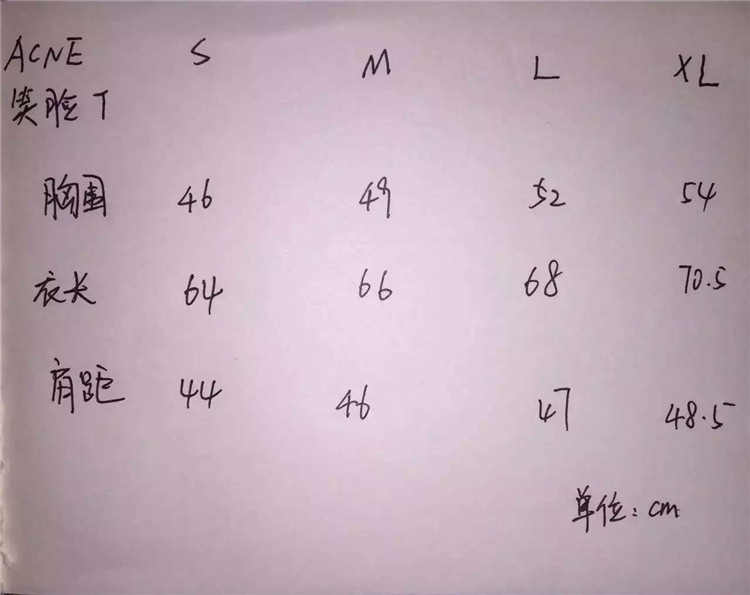 ACNE S M L XL
笑脸T
胸围 46 49 52 54
衣长 64 66 68 70.5
肩距 44 46 47 48.5
单位：cm